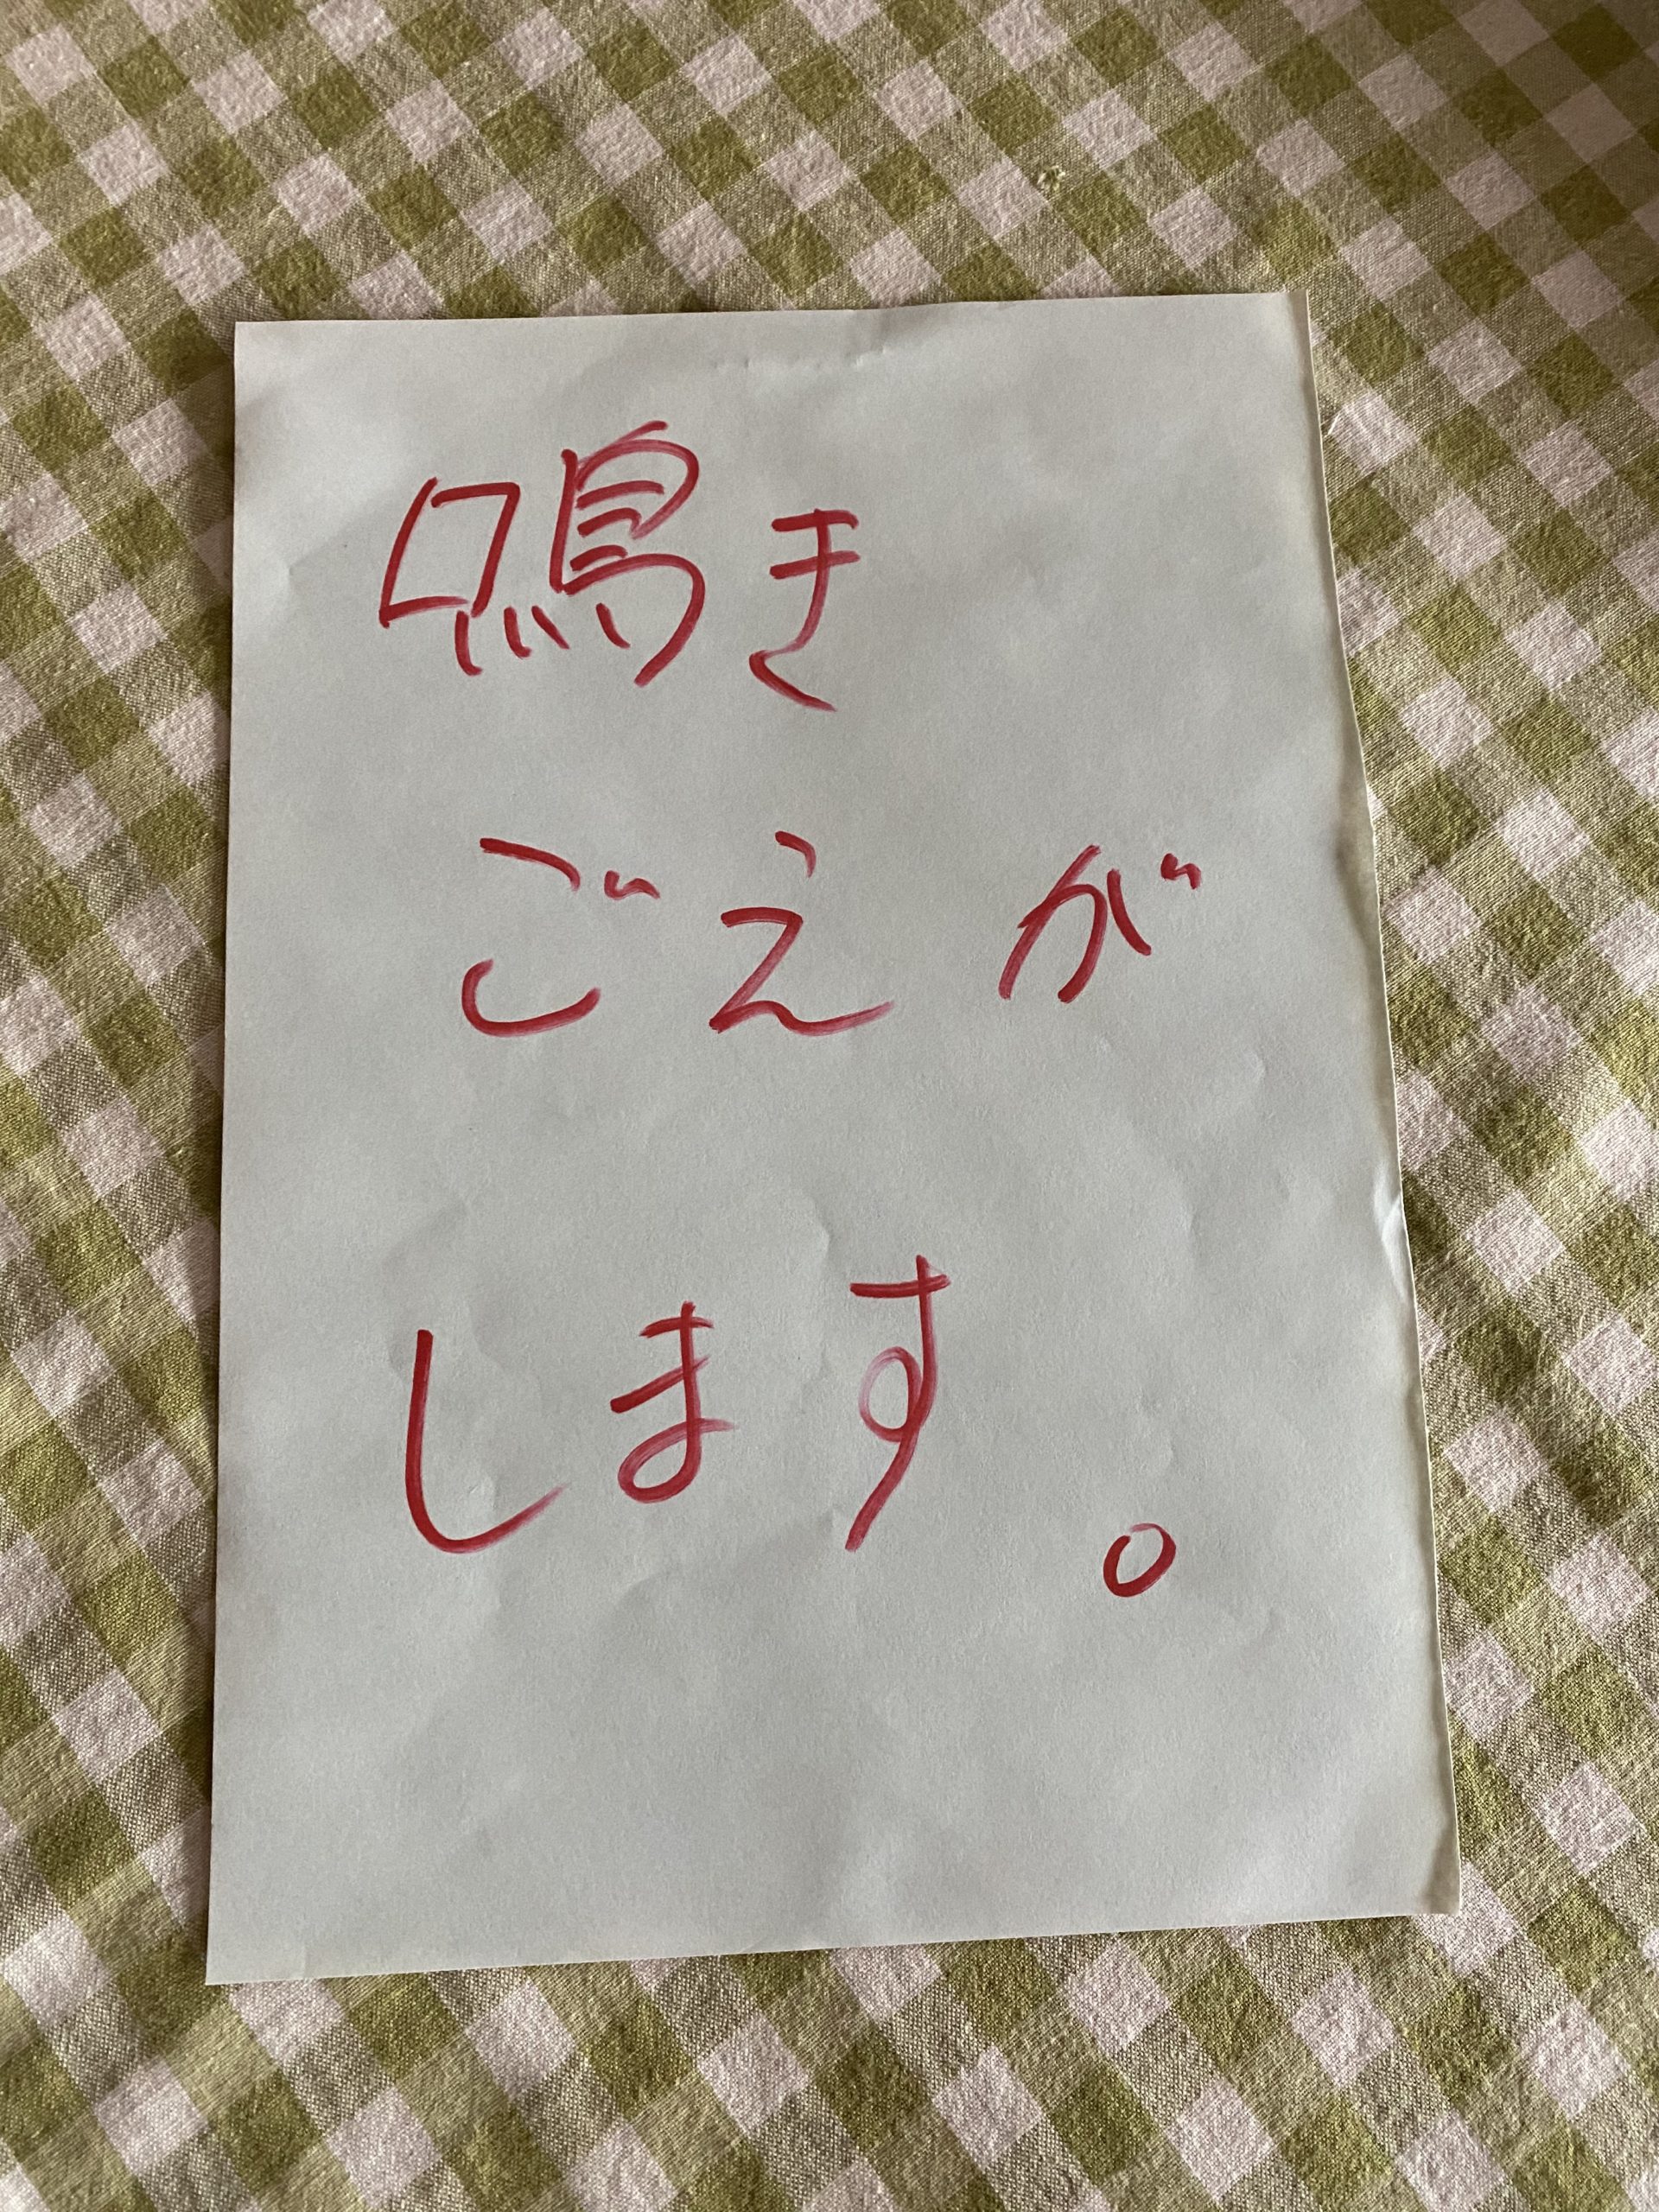 鳴き
ごえが
します。